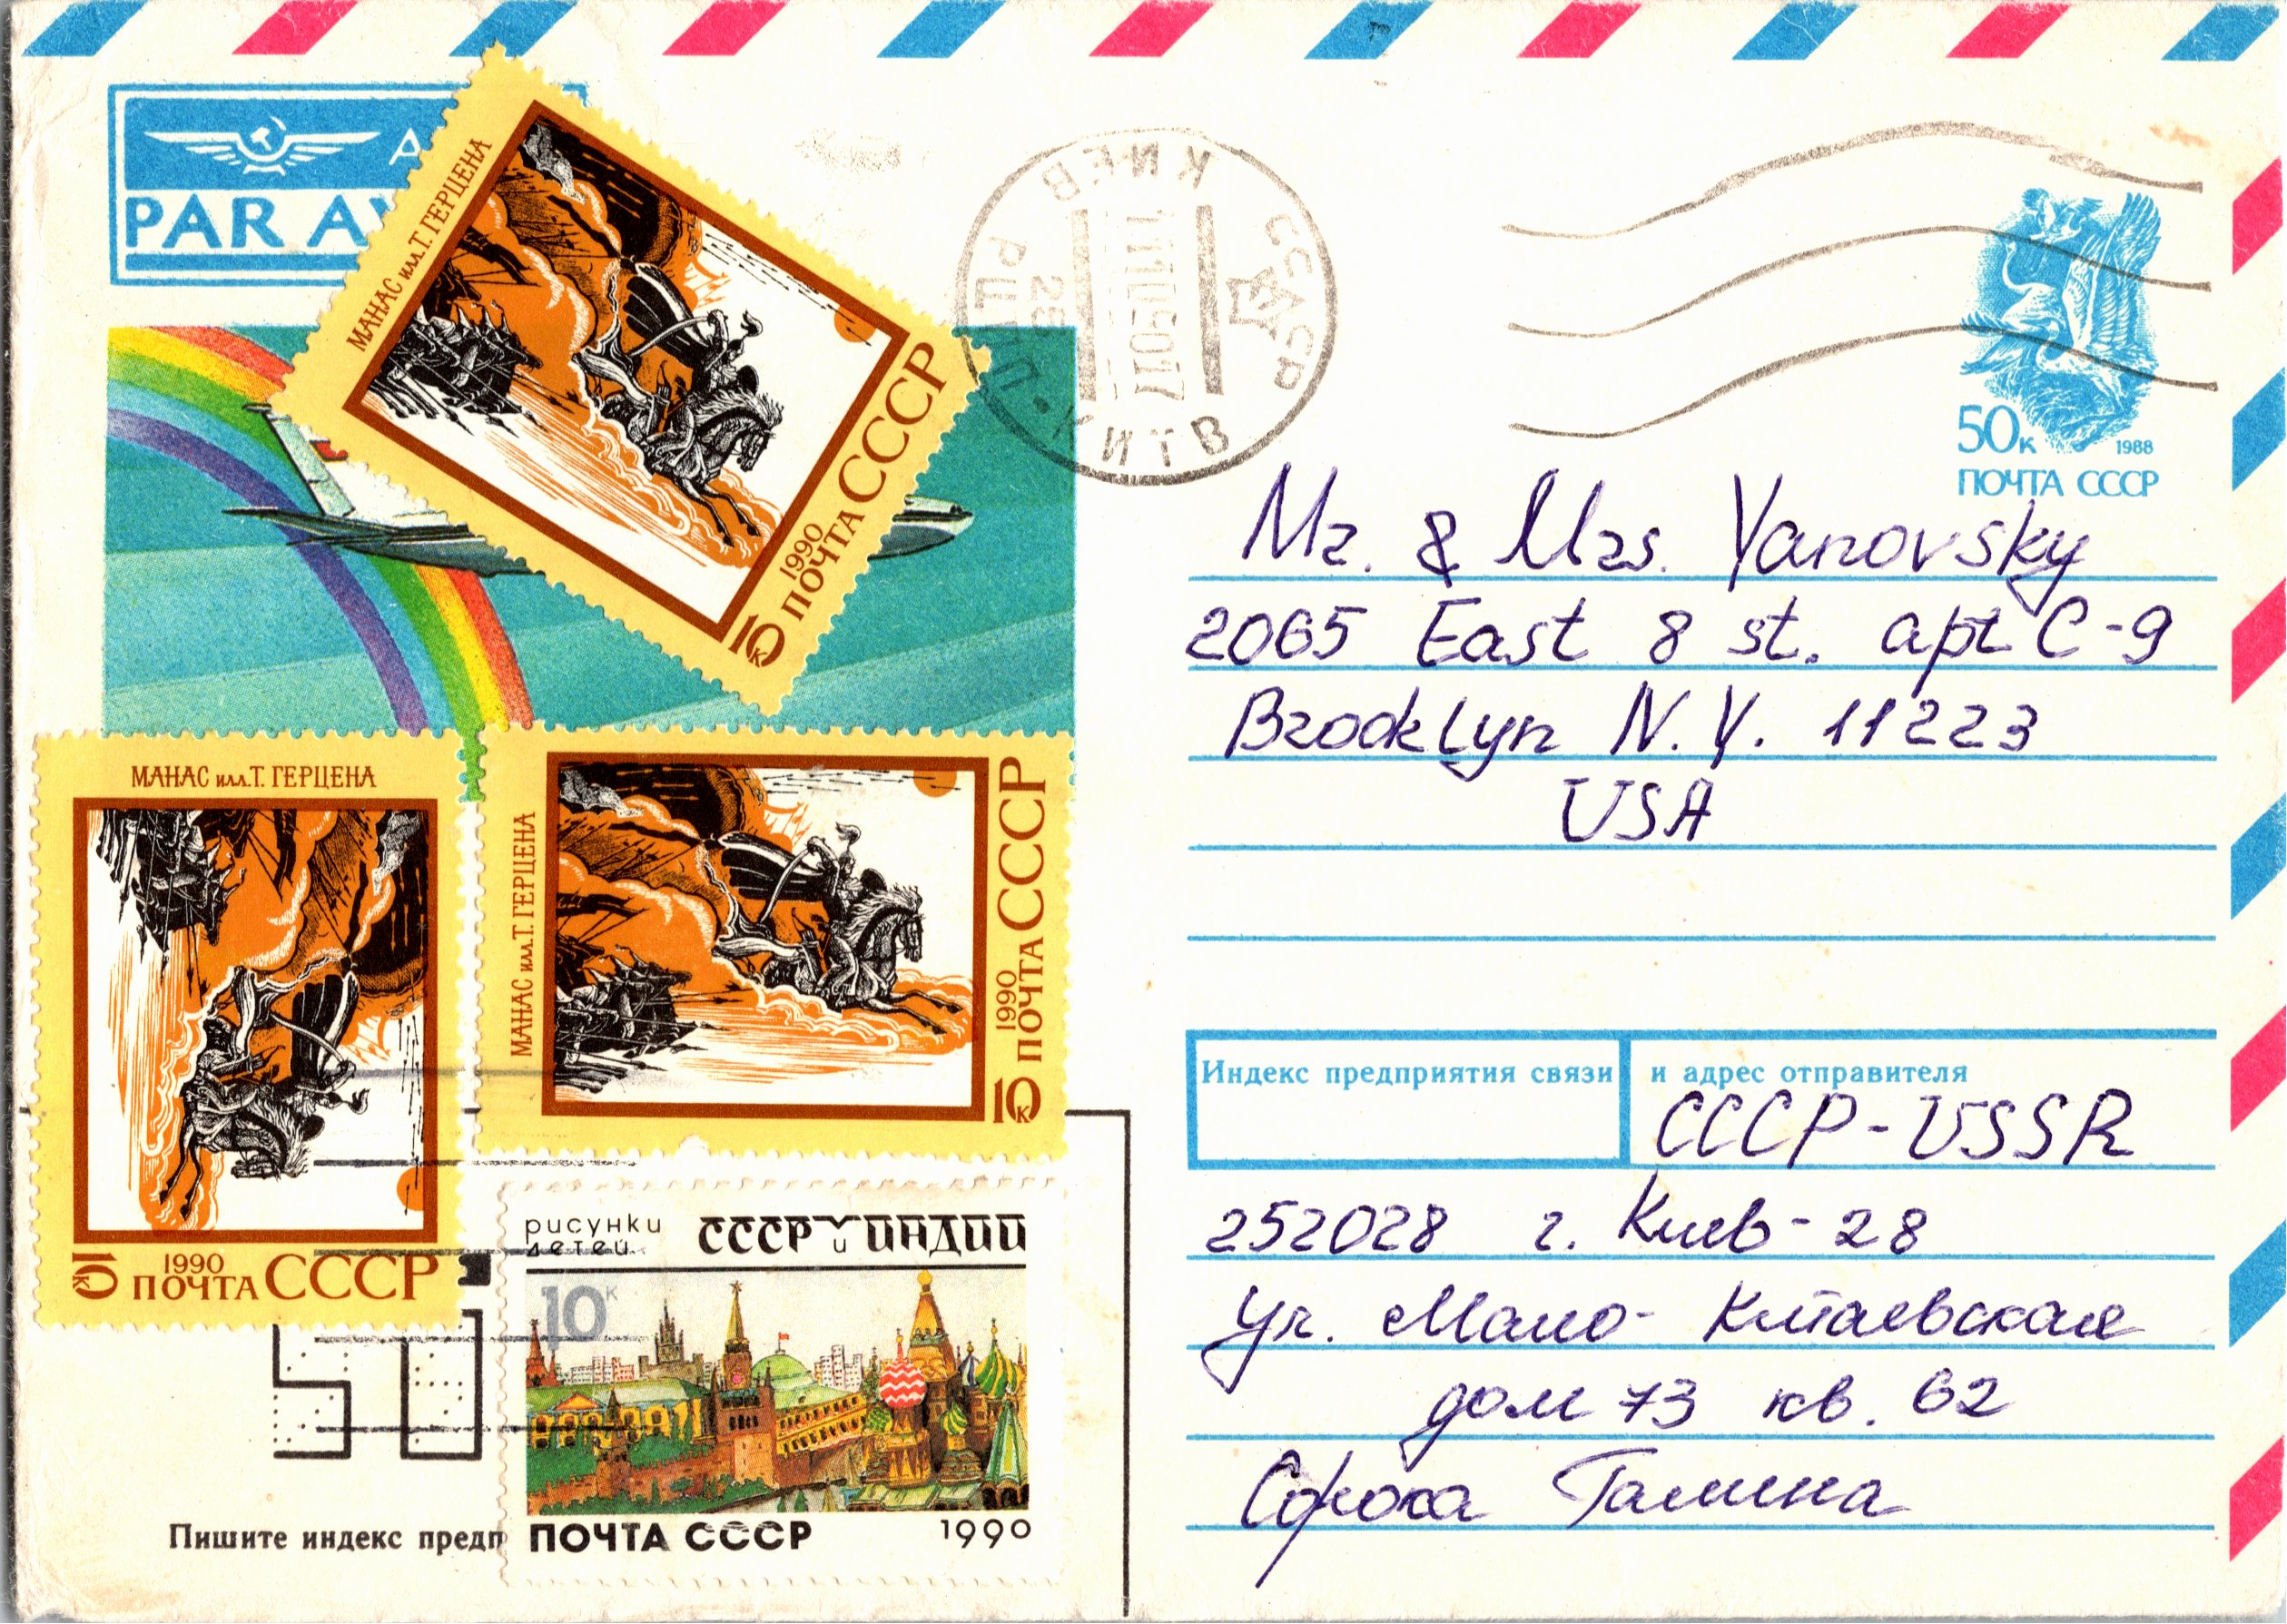 PAR AV
МАНАС илл.Т. ГЕРЦЕНА
1990
ПОЧТА СССР
10к
КИЕВ
СССР
КИЇВ
РЦПП
25
50к 1988
ПОЧТА СССР
Mr. & Mrs. Yanovsky
2065 East 8 st. apt C-9
Brooklyn N.Y. 11223
USA
МАНАС илл.Т. ГЕРЦЕНА
1990
ПОЧТА СССР
10к
МАНАС илл.Т. ГЕРЦЕНА
1990
ПОЧТА СССР
10к
Индекс предприятия связи и адрес отправителя
СССР-USSR
252028 г. Киев-28
Ул. Мало-Китаевская
дом 73 кв. 62
Сорока Галина
рисунки детей СССР и ИНДИИ
10к
ПОЧТА СССР 1990
50
Пишите индекс предп